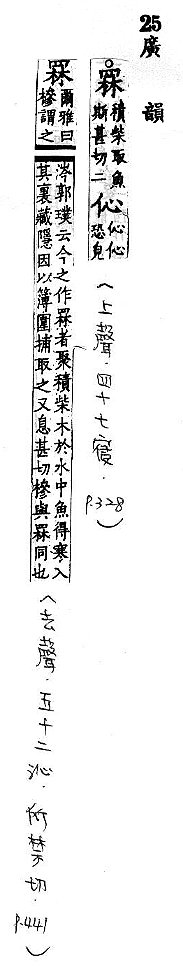 25廣韻
罧積柴取魚斯甚切二伈伈伈恐皃(上聲.四十七寑.P.328)
罧爾雅曰槮謂之涔郭璞云今之作罧者聚積柴木於水中魚得寒入其裏藏隱因以簿圍捕取之又息甚切槮與罧同也(去聲.五十二沁.所禁切.P.441)